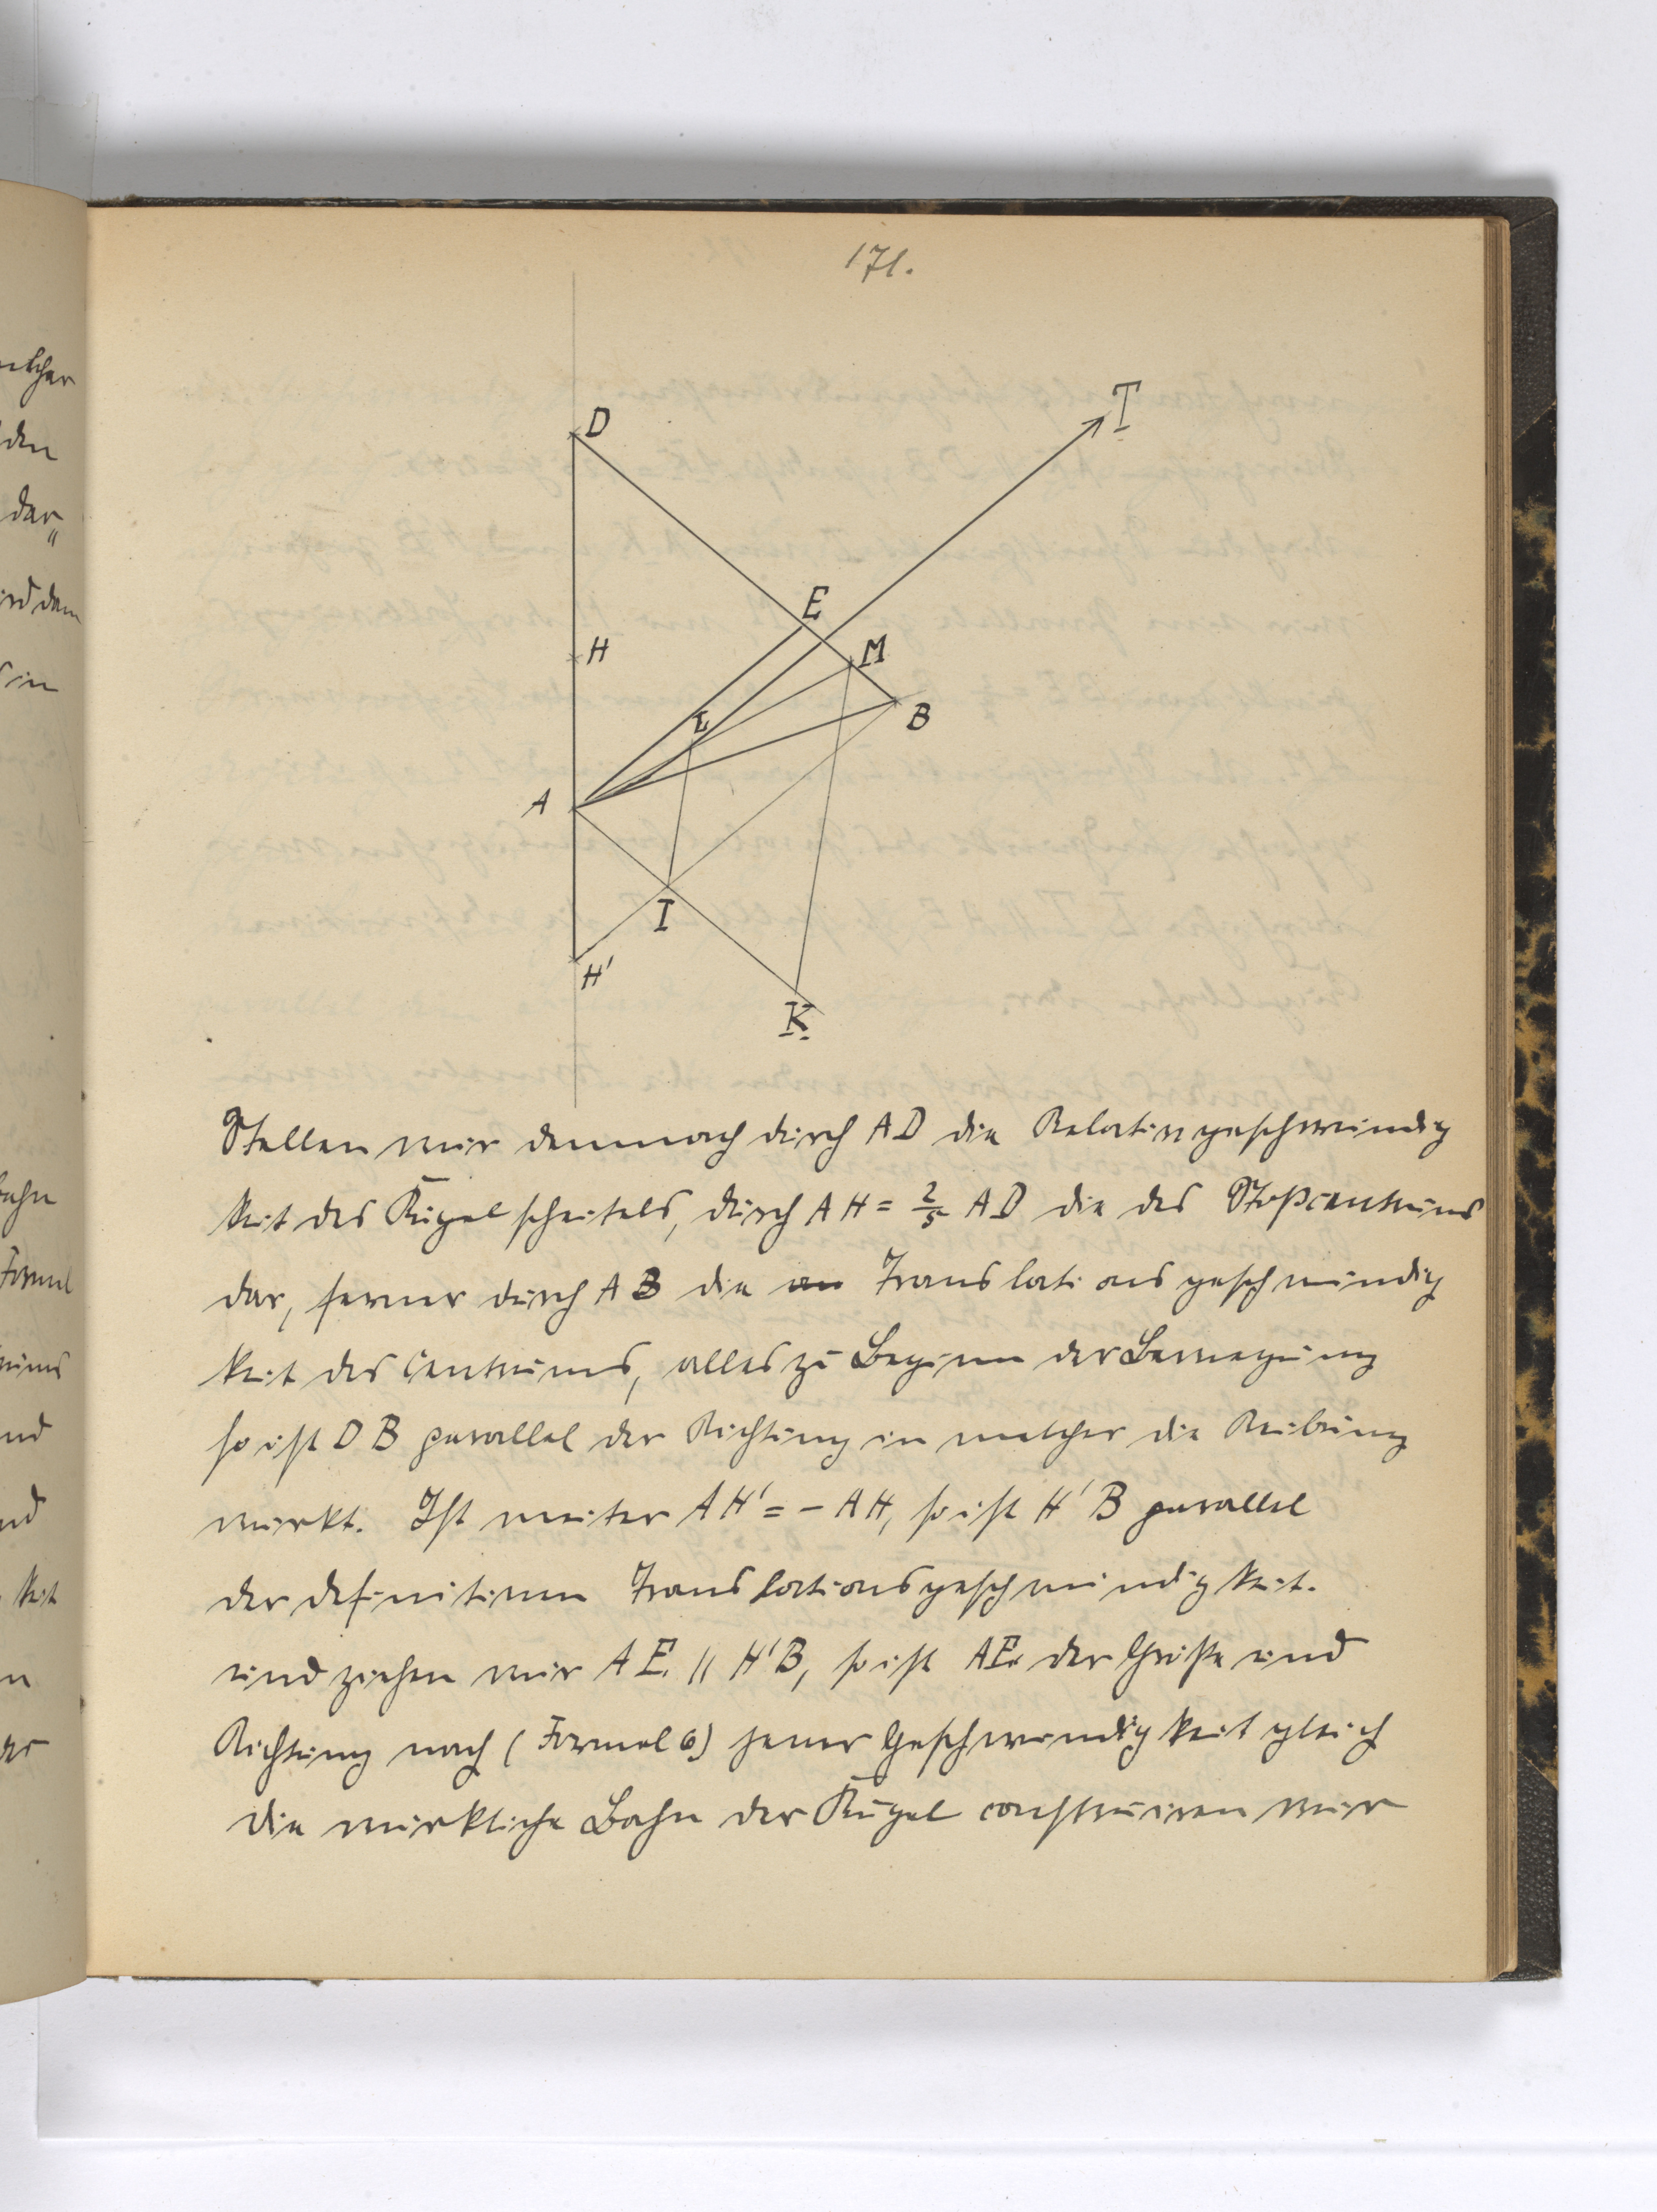 171.
D
T
E
H
M
L
B
A
I
H'
K
Stellen wir demnach durch AD die Relativgeschwindig
keit des Kugelscheitels, durch AH = 2/5 AD die des Stoßcentrums
dar, ferner durch AB die Translationsgeschwindig
keit des Centrums, alles zu Beginn der Bewegung
so ist DB parallel der Richtung in welcher die Reibung
wirkt. Ist weiter AH' = - AH, so ist H'B parallel
der definitiven Translationsgeschwindigkeit.
und ziehen wir AE. || H'B, so ist AE. der Größe und
Richtung nach (Formel 6) jener Geschwindigkeit gleich
die wirkliche Bahn der Kugel construiren wir